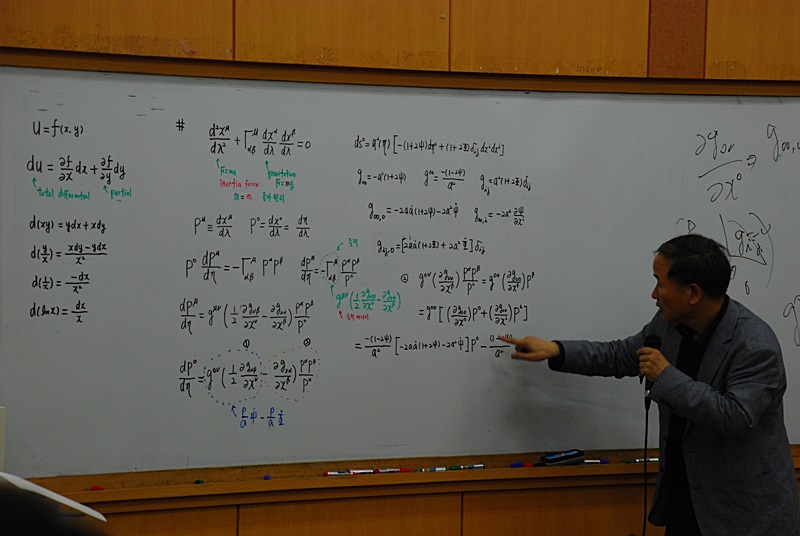 U = f(x, y)
du = ∂f/∂x dx + ∂f/∂y dy
total differential partial
d(xy) = ydx + xdy
d(y/x) = xdy - ydx / x²
d(1/x) = -dx / x²
d(ln x) = dx/x
# d²x^μ/dλ² + Γ^μ_αβ dx^α/dλ dx^β/dλ = 0
F=ma gravitation
inertia force F=mg
m = m 등가 원리
P^μ ≡ dx^μ/dλ P⁰ = dx⁰/dλ = dη/dλ
P⁰ dP^μ/dη = -Γ^μ_αβ P^α P^β
dP^μ/dη = -Γ^μ_αβ P^α P^β / P⁰
dP^μ/dη = g^μν (1/2 ∂g_αβ/∂x^ν - ∂g_αν/∂x^β) P^α P^β / P⁰
① ②
dP⁰/dη = g^0ν (1/2 ∂g_αβ/∂x^ν - ∂g_αν/∂x^β) P^α P^β / P⁰
ds² = a²(η) [-(1+2ψ)dη² + (1+2Φ)δ_ij dx^i dx^j]
g_00 = -a²(1+2ψ) g^00 = -(1-2ψ)/a² g_ij = a²(1+2Φ)δ_ij
g_00,0 = -2aȧ(1+2ψ) - 2a²ψ̇ g_00,i = -2a² ∂ψ/∂x^i
g_ij,0 = [2aȧ(1+2Φ) + 2a²Φ̇] δ_ij
② g^0ν (∂g_αν/∂x^β) P^α P^β / P⁰ = g^00 (∂g_00/∂x^β) P^β
= g^00 [(∂g_00/∂x⁰) P⁰ + (∂g_00/∂x^i) P^i]
= -(1-2ψ)/a² [-2aȧ(1+2ψ) - 2a²ψ̇] P⁰ -
∂g_0ν/∂x⁰ =